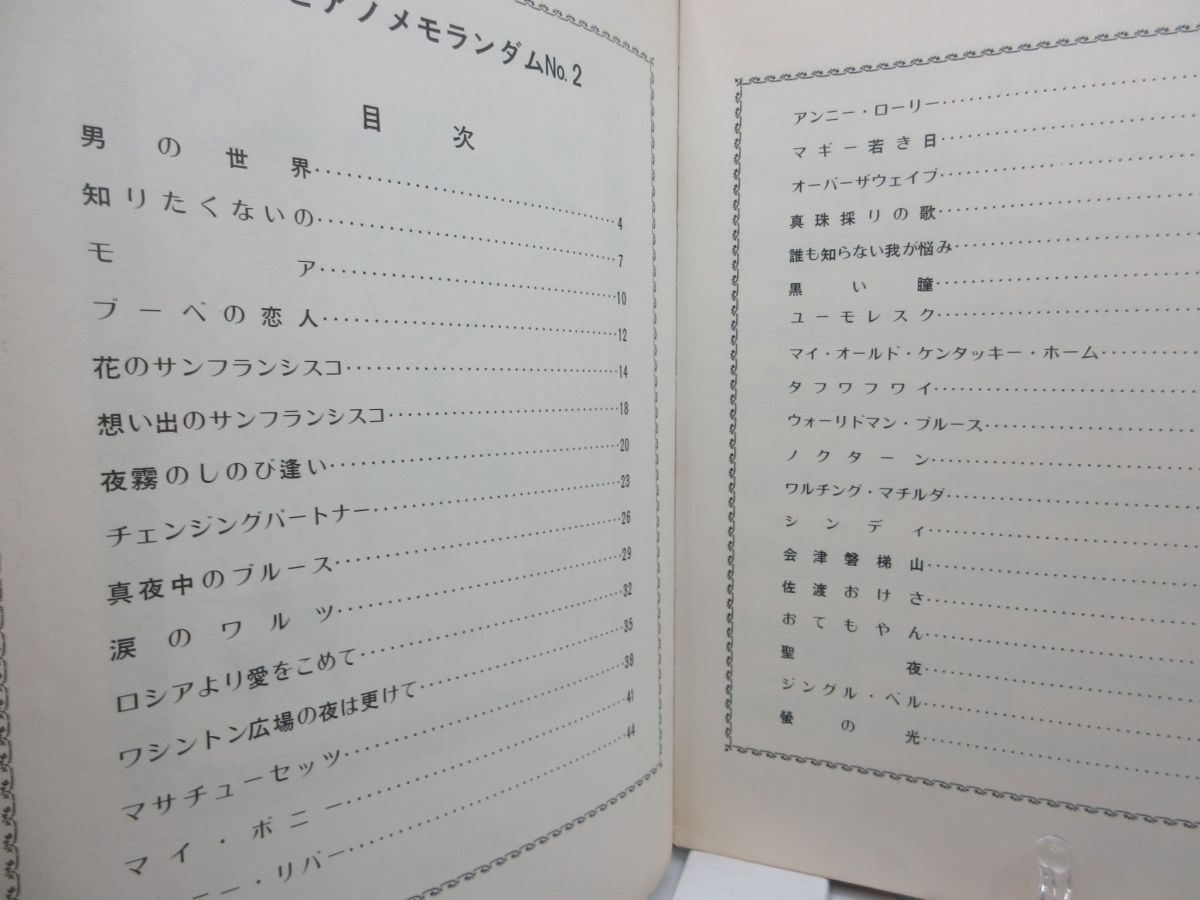 ピアノメモランダムNo.2
目次
男の世界 4
知りたくないの 7
モア 10
ブーベの恋人 12
花のサンフランシスコ 14
想い出のサンフランシスコ 18
夜霧のしのび逢い 20
チェンジングパートナー 23
真夜中のブルース 26
涙のワルツ 29
ロシアより愛をこめて 32
ワシントン広場の夜は更けて 35
マサチューセッツ 38
マイ・ボニー 41
ニー・リバー 44
アンニー・ローリー
マギー若き日
オーバーザウェイブ
真珠採りの歌
誰も知らない我が悩み
黒い瞳
ユーモレスク
マイ・オールド・ケンタッキー・ホーム
タフワフワイ
ウォーリドマン・ブルース
ノクターン
ワルチング・マチルダ
シンディ
会津磐梯山
佐渡おけさ
おてもやん
聖夜
ジングル・ベル
螢の光